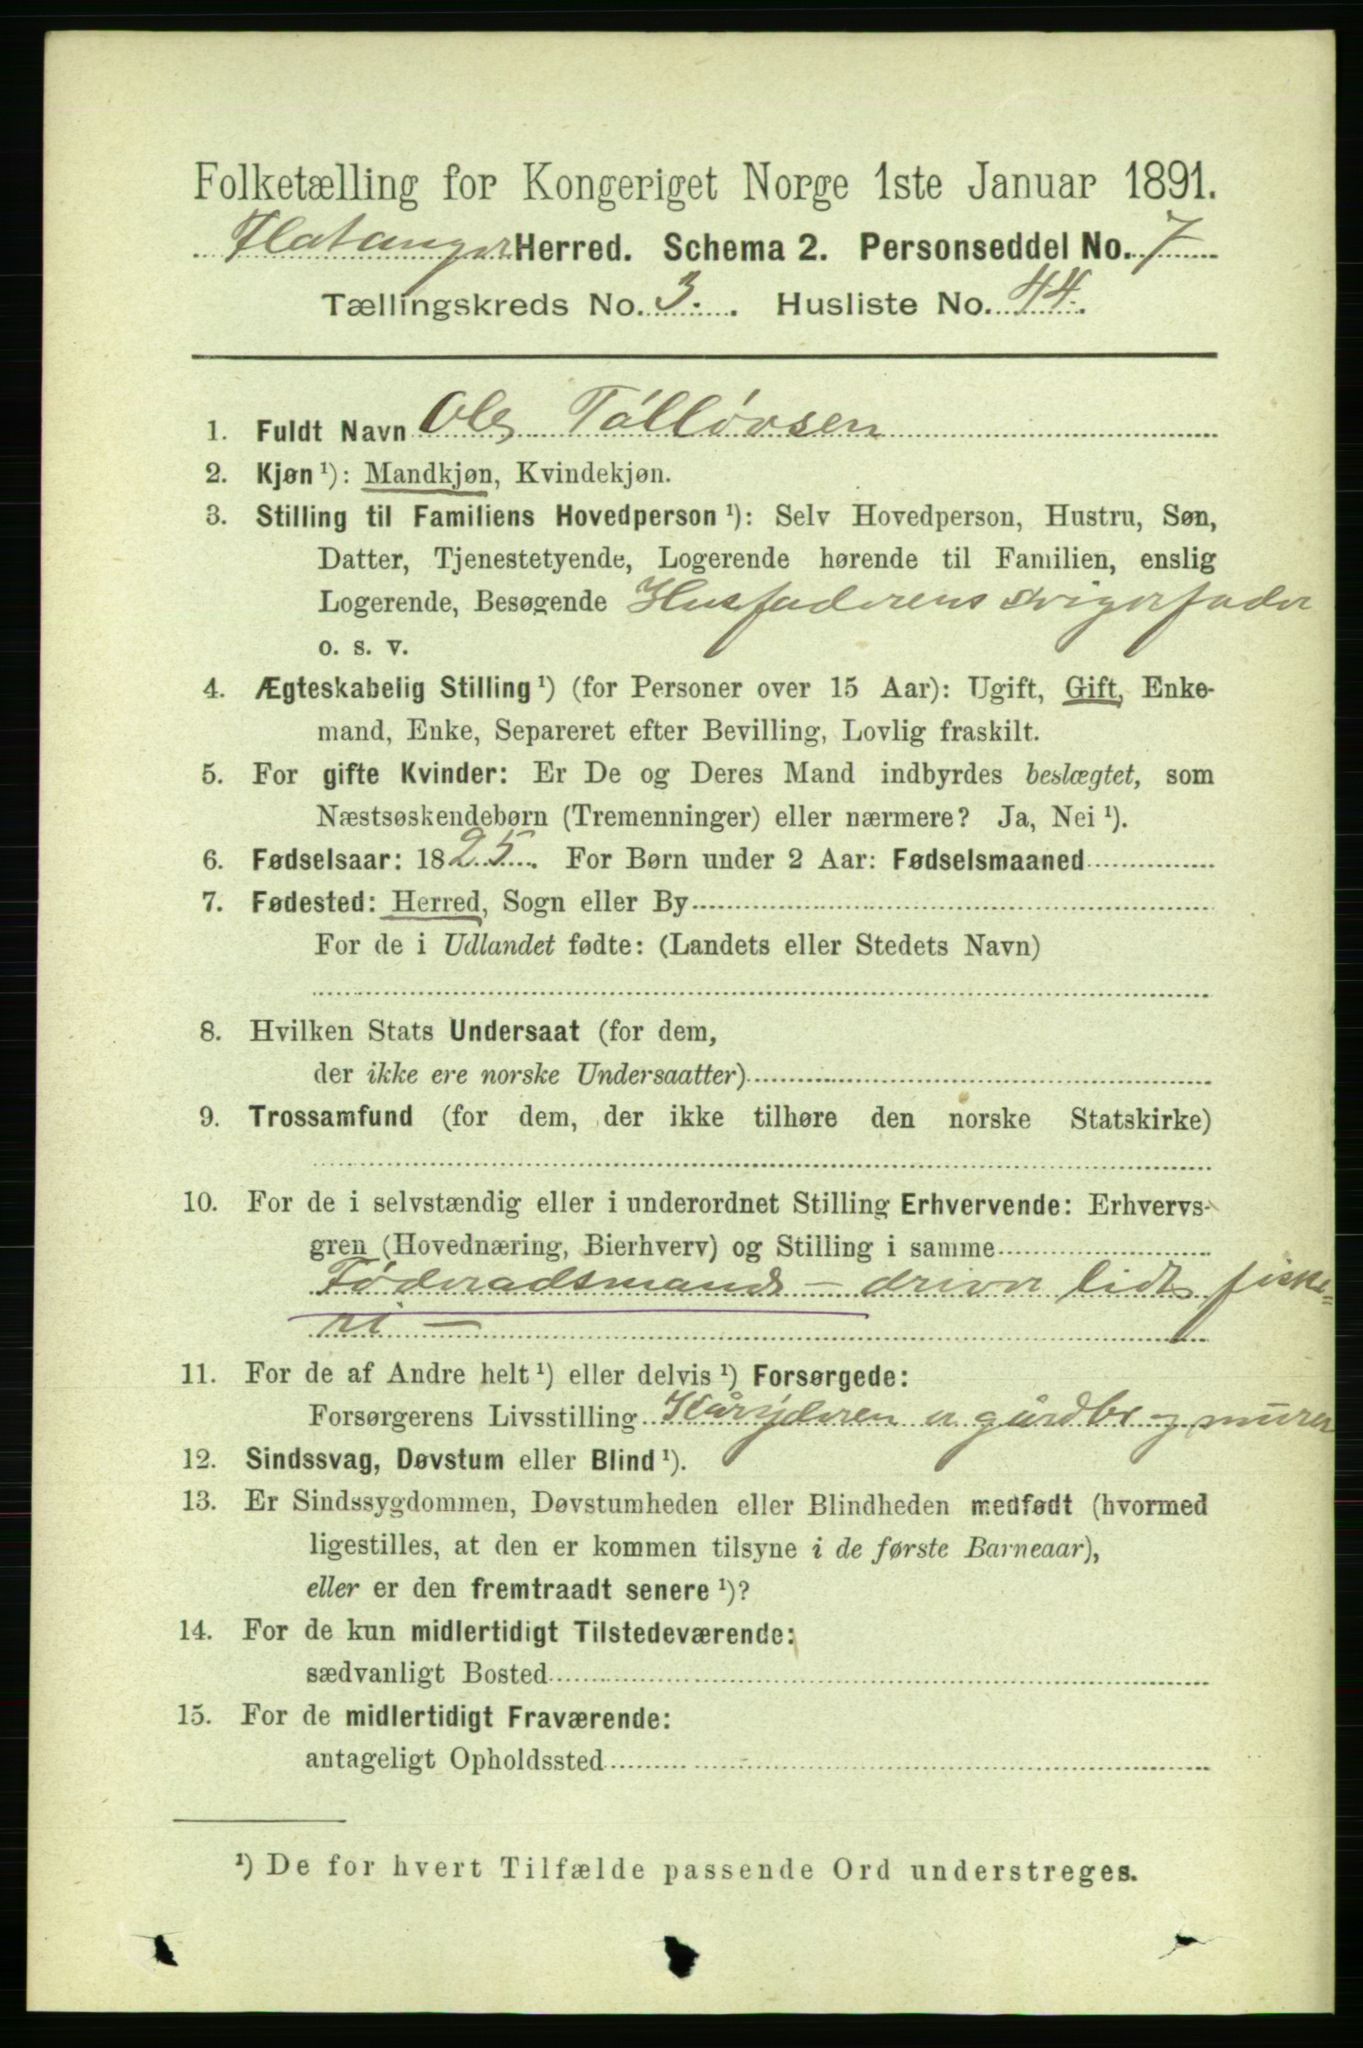 Folketælling for Kongeriget Norge 1ste Januar 1891.
Flatanger Herred. Schema 2. Personseddel No. 7
Tællingskreds No. 3. Husliste No. 44.
1. Fuldt Navn Ole Tølløvsen
2. Kjøn ¹): Mandkjøn, Kvindekjøn.
3. Stilling til Familiens Hovedperson ¹): Selv Hovedperson, Hustru, Søn,
Datter, Tjenestetyende, Logerende hørende til Familien, enslig
Logerende, Besøgende Husfaderens svigerfader
o. s. v.
4. Ægteskabelig Stilling ¹) (for Personer over 15 Aar): Ugift, Gift, Enke-
mand, Enke, Separeret efter Bevilling, Lovlig fraskilt.
5. For gifte Kvinder: Er De og Deres Mand indbyrdes beslægtet, som
Næstsøskendebørn (Tremenninger) eller nærmere? Ja, Nei ¹).
6. Fødselsaar: 1825. For Børn under 2 Aar: Fødselsmaaned
7. Fødested: Herred, Sogn eller By
For de i Udlandet fødte: (Landets eller Stedets Navn)
8. Hvilken Stats Undersaat (for dem,
der ikke ere norske Undersaatter)
9. Trossamfund (for dem, der ikke tilhøre den norske Statskirke)
10. For de i selvstændig eller i underordnet Stilling Erhvervende: Erhvervs-
gren (Hovednæring, Bierhverv) og Stilling i samme
Føderaadsmand – driver lidt fiske=
ri –
11. For de af Andre helt ¹) eller delvis ¹) Forsørgede:
Forsørgerens Livsstilling Kåryderen er gårdbr og murer
12. Sindssvag, Døvstum eller Blind ¹).
13. Er Sindssygdommen, Døvstumheden eller Blindheden medfødt (hvormed
ligestilles, at den er kommen tilsyne i de første Barneaar),
eller er den fremtraadt senere ¹)?
14. For de kun midlertidigt Tilstedeværende:
sædvanligt Bosted
15. For de midlertidigt Fraværende:
antageligt Opholdssted
¹) De for hvert Tilfælde passende Ord understreges.